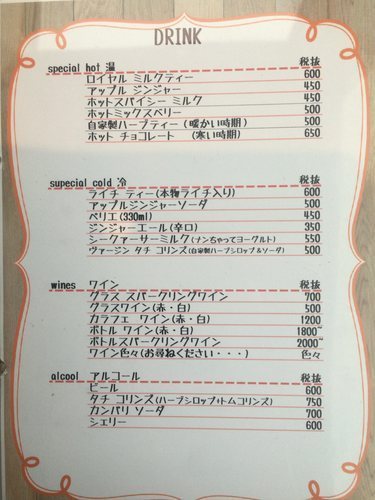 DRINK
special hot 温 税抜
ロイヤル ミルクティー 600
アップル ジンジャー 450
ホットスパイシー ミルク 450
ホットミックスベリー 500
自家製ハーブティー(暖かい時期) 500
ホット チョコレート (寒い時期) 650
supecial cold 冷 税抜
ライチ ティー(本物ライチ入り) 600
アップルジンジャーソーダ 500
ペリエ(330ml) 450
ジンジャーエール(辛口) 350
シークァーサーミルク(ナンちゃってヨーグルト) 550
ヴァージン タチ コリンズ(自家製ハーブシロップ&ソーダ) 500
wines ワイン 税抜
グラス スパークリングワイン 700
グラスワイン(赤・白) 500
カラフェ ワイン(赤・白) 1200
ボトル ワイン(赤・白) 1800~
ボトルスパークリングワイン 2000~
ワイン色々(お尋ねください・・・) 色々
alcool アルコール 税抜
ビール 600
タチ コリンズ(ハーブシロップ+トムコリンズ) 750
カンパリ ソーダ 700
シェリー 600